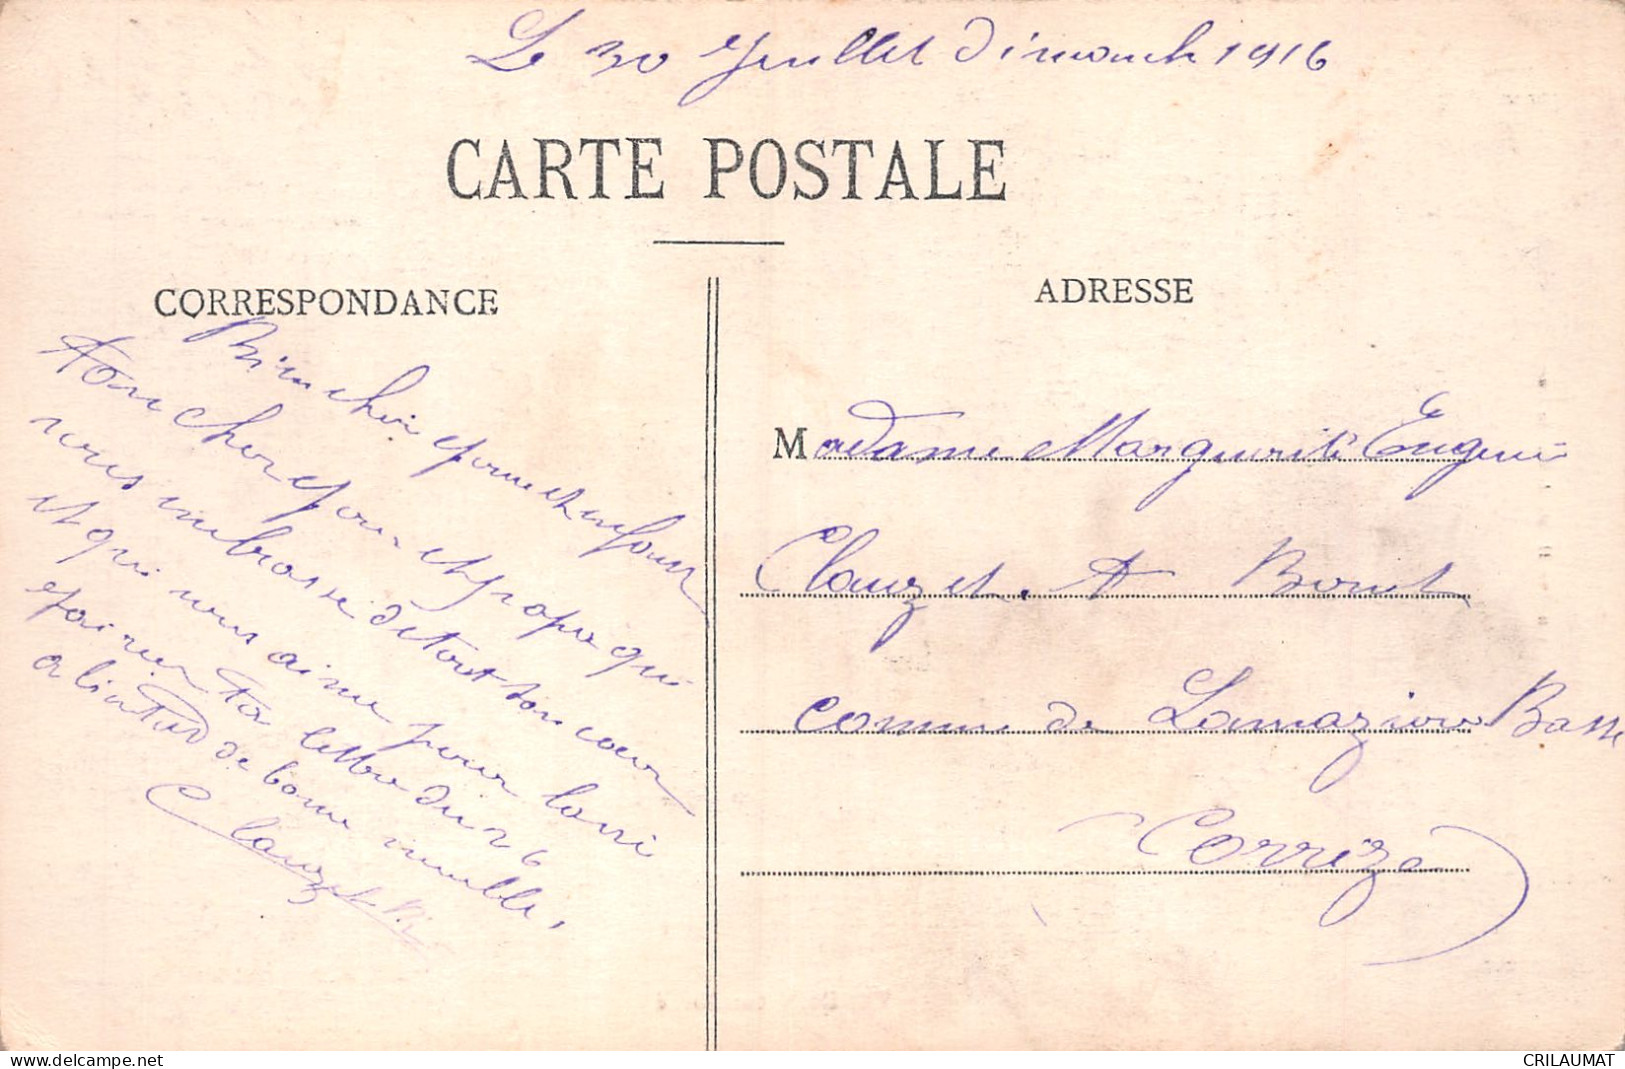 Le 30 Juillet Dimanch 1916
CARTE POSTALE
CORRESPONDANCE
ADRESSE
Bien cheri epouse et enfant
Ton cher epou et papa qui
vous embrasse de tout son coeur
et qui vous aime pour la vi
jai reçu ta lettre du 26
a lintud de bonne nuelle,
Clauzet
Madame Marguerite Eugeni
Clauzet. A Borut
comune de Lamaziere Basse
Correze
www.delcampe.net
CRILAUMAT